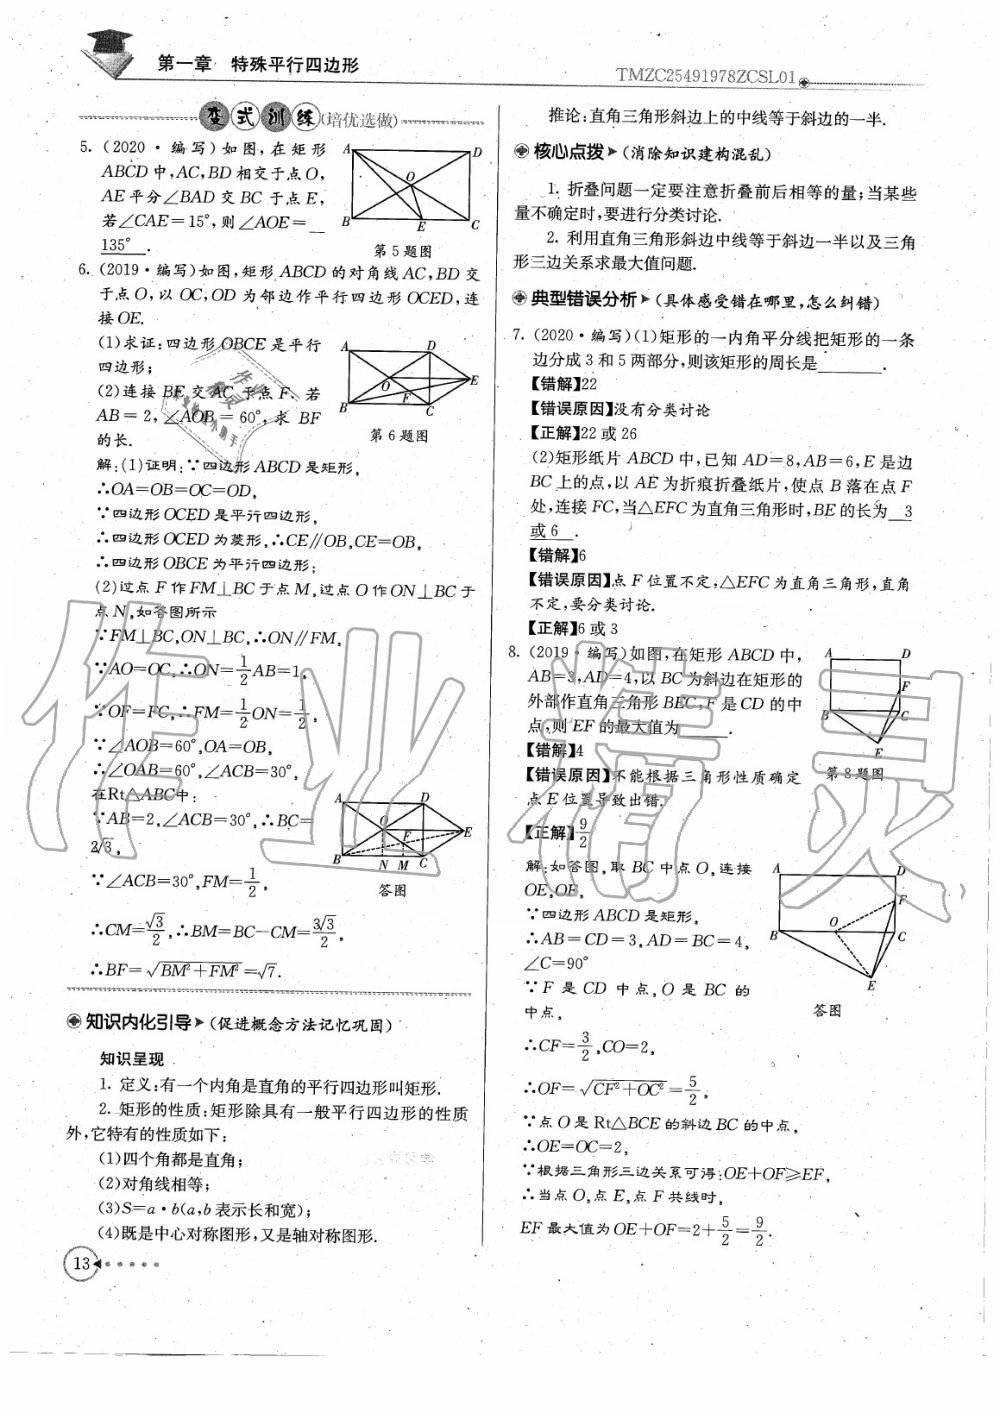 第一章 特殊平行四边形
TMZC25491978ZCSL01
变式训练(培优选做)
5. (2020·编写)如图,在矩形
ABCD中,AC,BD相交于点O,
AE平分∠BAD交BC于点E,
若∠CAE=15°,则∠AOE=
135°.
A
D
O
B
E
C
第5题图
6. (2019·编写)如图,矩形ABCD的对角线AC,BD交
于点O,以OC,OD为邻边作平行四边形OCED,连
接OE.
(1)求证:四边形OBCE是平行
四边形;
(2)连接BE交AC于点F.若
AB=2,∠AOB=60°,求BF
的长.
A
D
O
E
F
B
C
第6题图
解:(1)证明:∵四边形ABCD是矩形,
∴OA=OB=OC=OD,
∵四边形OCED是平行四边形,
∴四边形OCED为菱形,∴CE∥OB,CE=OB,
∴四边形OBCE为平行四边形;
(2)过点F作FM⊥BC于点M,过点O作ON⊥BC于
点N,如答图所示
∵FM⊥BC,ON⊥BC,∴ON∥FM,
∵AO=OC,∴ON=1/2AB=1,
∵OF=FC,∴FM=1/2ON=1/2,
∵∠AOB=60°,OA=OB,
∴∠OAB=60°,∠ACB=30°,
在Rt△ABC中:
∵AB=2,∠ACB=30°,∴BC=
2√3,
∵∠ACB=30°,FM=1/2,
∴CM=√3/2,∴BM=BC-CM=3√3/2,
∴BF=√(BM²+FM²)=√7.
A
D
O
F
E
B
N M C
答图
知识内化引导(促进概念方法记忆巩固)
知识呈现
1. 定义:有一个内角是直角的平行四边形叫矩形.
2. 矩形的性质:矩形除具有一般平行四边形的性质
外,它特有的性质如下:
(1)四个角都是直角;
(2)对角线相等;
(3)S=a·b(a,b表示长和宽);
(4)既是中心对称图形,又是轴对称图形.
13
推论:直角三角形斜边上的中线等于斜边的一半.
核心点拨(消除知识建构混乱)
1. 折叠问题一定要注意折叠前后相等的量;当某些
量不确定时,要进行分类讨论.
2. 利用直角三角形斜边中线等于斜边一半以及三角
形三边关系求最大值问题.
典型错误分析(具体感受错在哪里,怎么纠错)
7. (2020·编写)(1)矩形的一内角平分线把矩形的一条
边分成3和5两部分,则该矩形的周长是______.
【错解】22
【错误原因】没有分类讨论
【正解】22或26
(2)矩形纸片ABCD中,已知AD=8,AB=6,E是边
BC上的点,以AE为折痕折叠纸片,使点B落在点F
处,连接FC,当△EFC为直角三角形时,BE的长为 3
或6 .
【错解】6
【错误原因】点F位置不定,△EFC为直角三角形,直角
不定,要分类讨论.
【正解】6或3
8. (2019·编写)如图,在矩形ABCD中,
AB=3,AD=4,以BC为斜边在矩形的
外部作直角三角形BEC,F是CD的中
点,则EF的最大值为______.
【错解】4
【错误原因】不能根据三角形性质确定
点E位置导致出错.
【正解】9/2
A
D
F
B
C
E
第8题图
解:如答图,取BC中点O,连接
OE,OF,
∵四边形ABCD是矩形,
∴AB=CD=3,AD=BC=4,
∠C=90°
∵F是CD中点,O是BC的
中点,
∴CF=3/2,CO=2,
∴OF=√(CF²+OC²)=5/2,
∵点O是Rt△BCE的斜边BC的中点,
∴OE=OC=2,
∵根据三角形三边关系可得:OE+OF≥EF,
∴当点O,点E,点F共线时,
EF最大值为OE+OF=2+5/2=9/2.
A
D
F
O
B
C
E
答图
作业精灵